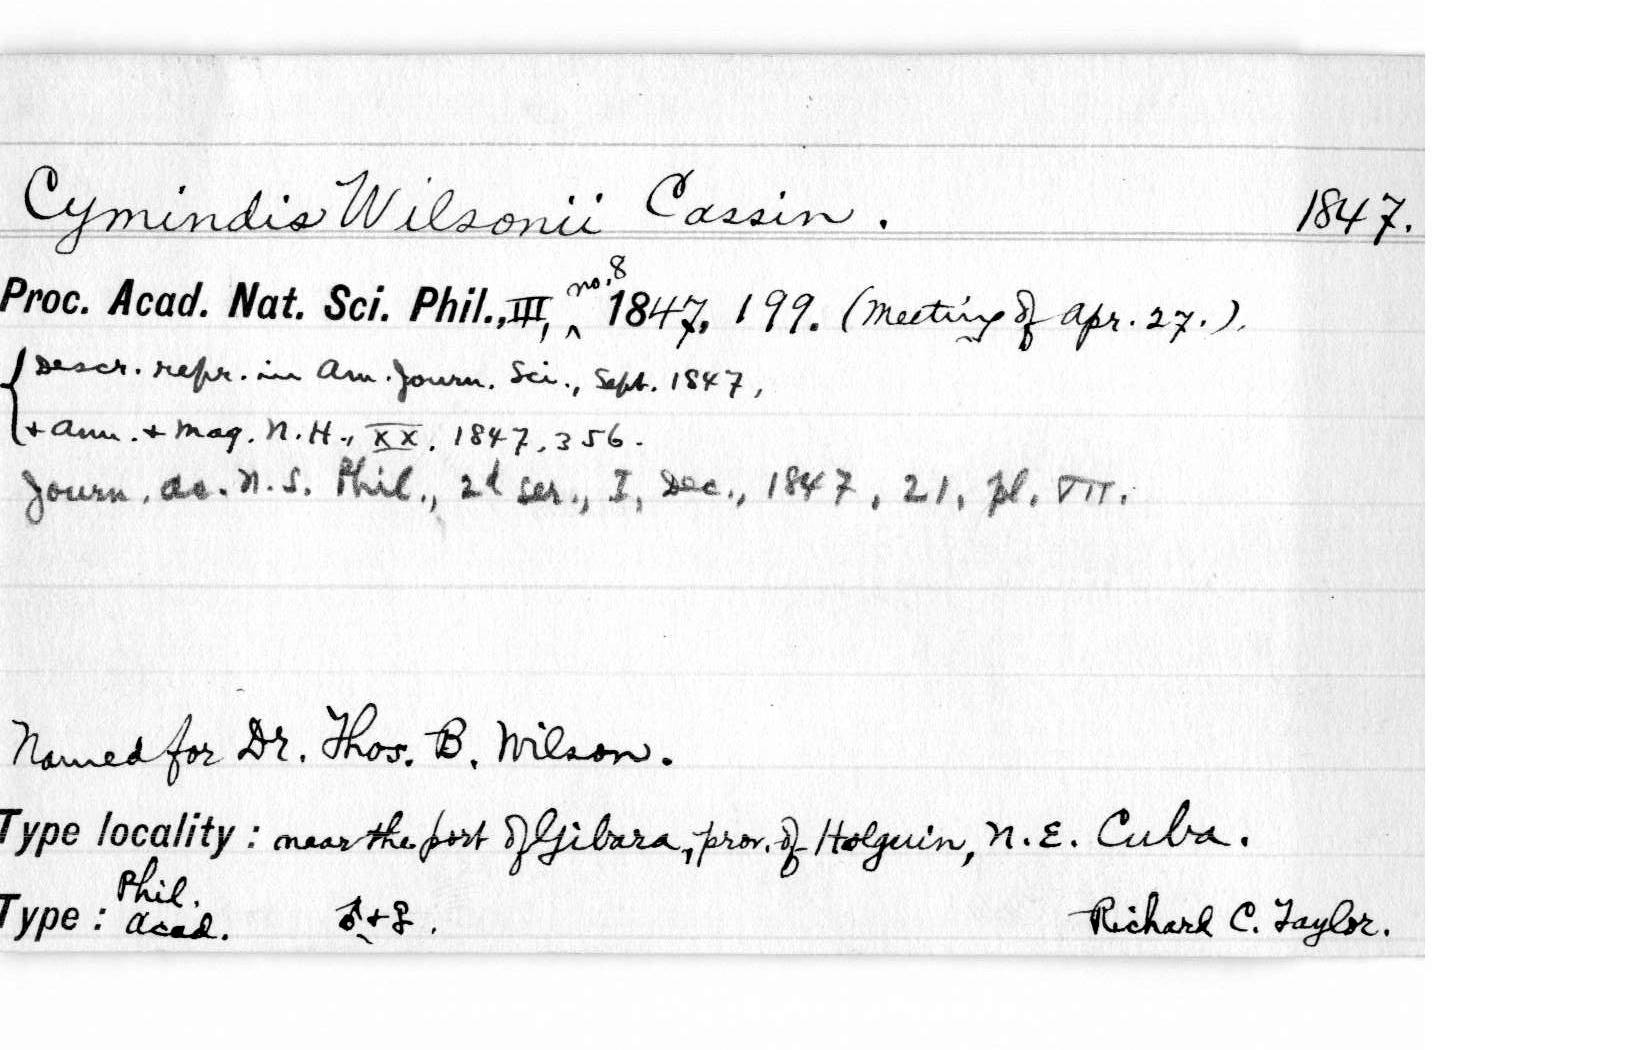 Cymindis Wilsonii Cassin. 1847.
Proc. Acad. Nat. Sci. Phil., III, no. 8 1847, 199. (Meeting of Apr. 27.).
Descr. repr. in Am. Journ. Sci., Sept. 1847,
+ Ann. + Mag. N. H., XX, 1847, 356.
Journ. Ac. N. S. Phil., 2d ser., I, Dec., 1847, 21, pl. VII.
Named for Dr. Thos. B. Wilson.
Type locality: near the port of Gibara, prov. of Holguin, N. E. Cuba.
Type: Phil. Acad. ♂ + ♀. Richard C. Taylor.